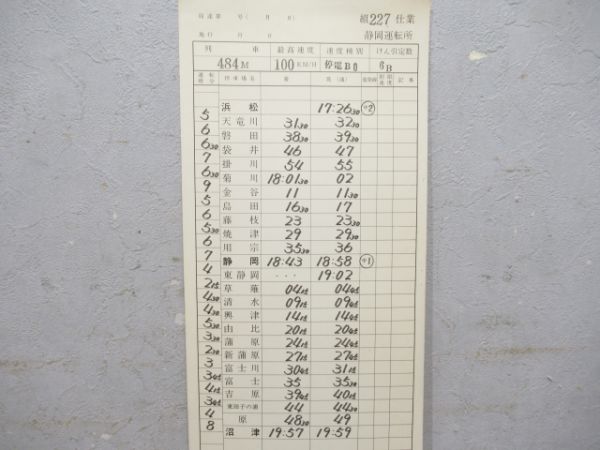 相達第 号( 月 日) 續227仕業
施行 月 日 静岡運転所
列 車 最高速度 速度種別 けん引定数
484M 100KM/H 停電B0 6B
運転時分 停車場名 着 発(通) 着発線 制限速度 記事
浜松 17:26 30 ㊟2
5
天竜川 31 30 32 30
6
磐田 38 30 39 30
6 30
袋井 46 47
7
掛川 54 55
6 30
菊川 18:01 30 02
9
金谷 11 11 30
5
島田 16 30 17
6
藤枝 23 23 30
5 30
焼津 29 29 30
6
用宗 35 30 36
7
静岡 18:43 18:58 ㊟1
4
東静岡 ・・・ 19:02
2 15
草薙 04 15 04 45
4 30
清水 09 15 09 45
4 30
興津 14 15 14 45
5 30
由比 20 15 20 45
3 30
蒲原 24 15 24 45
2 30
新蒲原 27 15 27 45
3
富士川 30 45 31 15
3 45
富士 35 35 30
4 15
吉原 39 45 40 15
3 45
東田子の浦 44 44 30
4
原 48 30 49
8
沼津 19:57 19:59